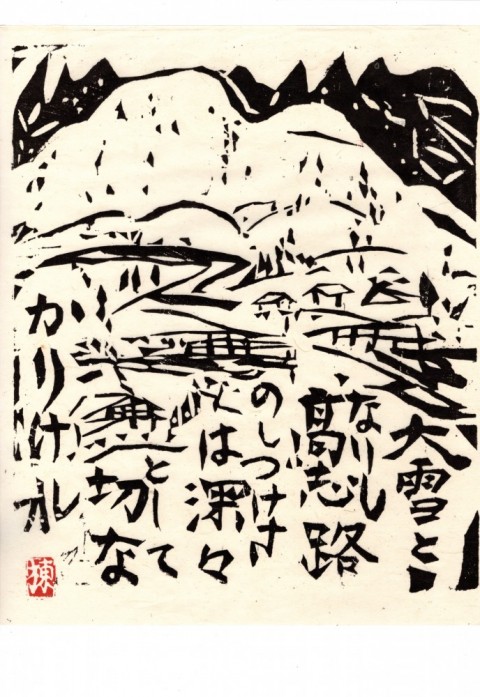 大雪と
なりし高志路
のしつけさ
とは深々
として
一切な
かりけれ
棟